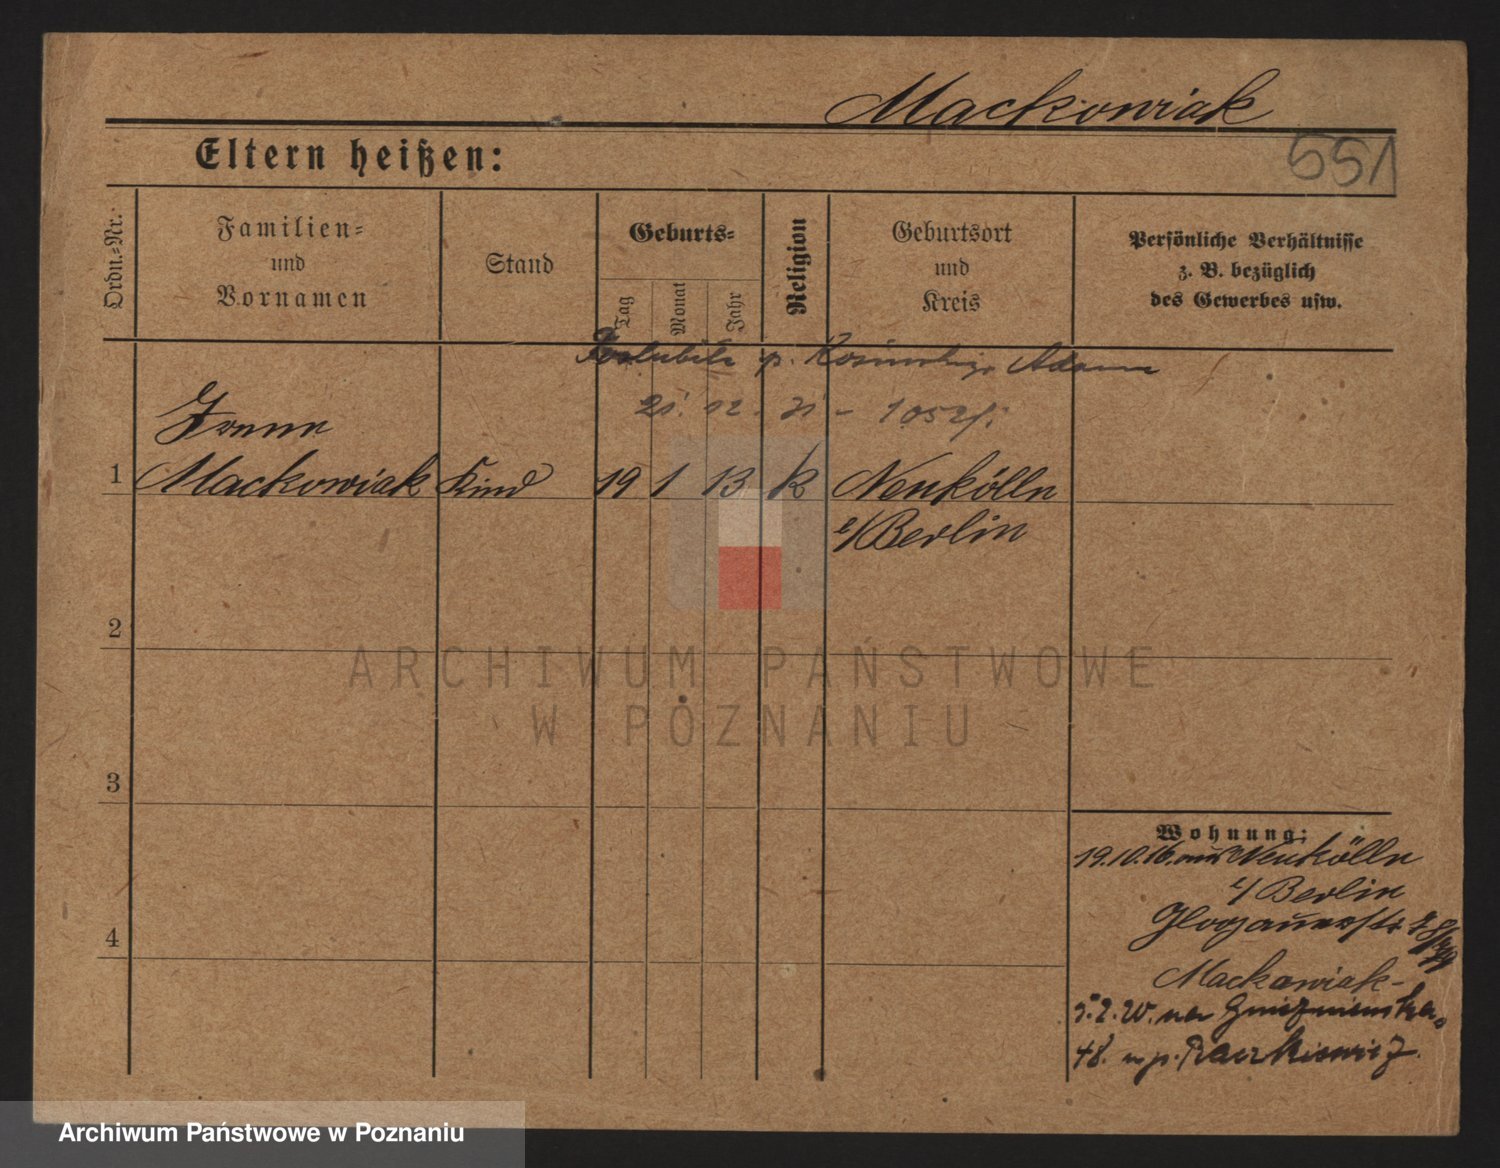 Mackowiak
551
Eltern heißen:
Ordn.=Nr.
Familien=
und
Vornamen
Stand
Geburts=
Tag
Monat
Jahr
Religion
Geburtsort
und
Kreis
Persönliche Verhältnisse
z. B. bezüglich
des Gewerbes usw.
p. Adam
21. 12. 31 -
1 Mackowiak Kind 19 1 13 k Neukölln
b/Berlin
2
3
4
Wohnung:
19.10.16. aus Neukölln
b/Berlin
Glogauerstr.
Mackowiak-
na Gnieźnieńska
48. p. Raczkiewicz
ARCHIWUM PAŃSTWOWE
W POZNANIU
Archiwum Państwowe w Poznaniu